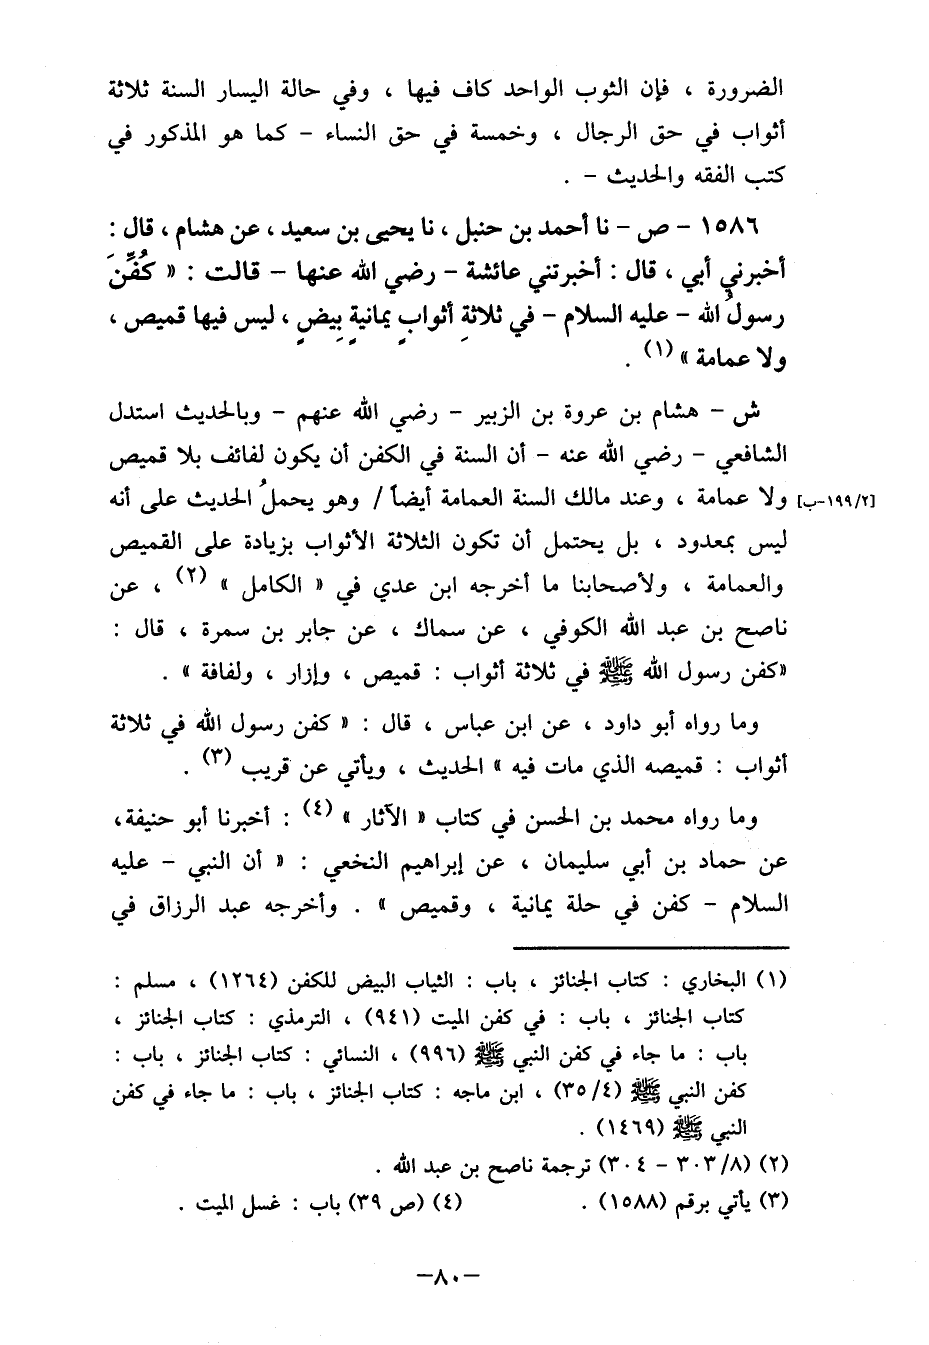 الضرورة ، فإن الثوب الواحد كاف فيها ، وفي حالة اليسار السنة ثلاثة
أثواب في حق الرجال ، وخمسة في حق النساء – كما هو المذكور في
كتب الفقه والحديث – .
١٥٨٦ – ص – نا أحمد بن حنبل ، نا يحيى بن سعيد ، عن هشام ، قال :
أخبرني أبي ، قال : أخبرتني عائشة – رضي الله عنها – قالت : « كُفِّنَ
رسولُ الله – عليه السلام – في ثلاثةِ أثوابٍ يمانيةٍ بِيضٍ ، ليس فيها قميص ،
ولا عمامة » (١) .
ش – هشام بن عروة بن الزبير – رضي الله عنهم – وبالحديث استدل
الشافعي – رضي الله عنه – أن السنة في الكفن أن يكون لفائف بلا قميص
[٢/١٩٩-ب] ولا عمامة ، وعند مالك السنة العمامة أيضاً / وهو يحملُ الحديث على أنه
ليس بمعدود ، بل يحتمل أن تكون الثلاثة الأثواب بزيادة على القميص
والعمامة ، ولأصحابنا ما أخرجه ابن عدي في « الكامل » (٢) ، عن
ناصح بن عبد الله الكوفي ، عن سماك ، عن جابر بن سمرة ، قال :
«كفن رسول الله ﷺ في ثلاثة أثواب : قميص ، وإزار ، ولفافة » .
وما رواه أبو داود ، عن ابن عباس ، قال : « كفن رسول الله في ثلاثة
أثواب : قميصه الذي مات فيه » الحديث ، ويأتي عن قريب (٣) .
وما رواه محمد بن الحسن في كتاب « الآثار » (٤) : أخبرنا أبو حنيفة،
عن حماد بن أبي سليمان ، عن إبراهيم النخعي : « أن النبي – عليه
السلام – كفن في حلة يمانية ، وقميص » . وأخرجه عبد الرزاق في
(١) البخاري : كتاب الجنائز ، باب : الثياب البيض للكفن (١٢٦٤) ، مسلم :
كتاب الجنائز ، باب : في كفن الميت (٩٤١) ، الترمذي : كتاب الجنائز ،
باب : ما جاء في كفن النبي ﷺ (٩٩٦) ، النسائي : كتاب الجنائز ، باب :
كفن النبي ﷺ (٤/٣٥) ، ابن ماجه : كتاب الجنائز ، باب : ما جاء في كفن
النبي ﷺ (١٤٦٩) .
(٢) (٨/٣٠٣ – ٣٠٤) ترجمة ناصح بن عبد الله .
(٣) يأتي برقم (١٥٨٨) . (٤) (ص ٣٩) باب : غسل الميت .
–٨٠–